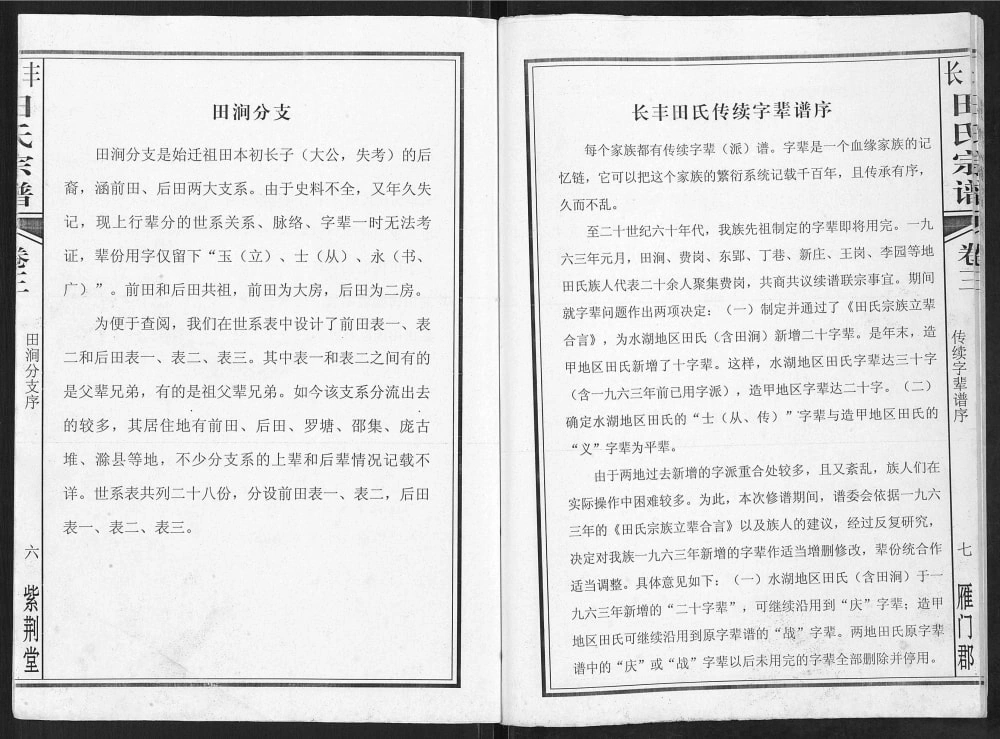 丰
田氏宗谱
卷三
田涧分支序
六
紫荆堂
田涧分支
田涧分支是始迁祖田本初长子（大公，失考）的后
裔，涵前田、后田两大支系。由于史料不全，又年久失
记，现上行辈分的世系关系、脉络、字辈一时无法考
证，辈份用字仅留下“玉（立）、士（从）、永（书、
广）”。前田和后田共祖，前田为大房，后田为二房。
为便于查阅，我们在世系表中设计了前田表一、表
二和后田表一、表二、表三。其中表一和表二之间有的
是父辈兄弟，有的是祖父辈兄弟。如今该支系分流出去
的较多，其居住地有前田、后田、罗塘、邵集、庞古
堆、滁县等地，不少分支系的上辈和后辈情况记载不
详。世系表共列二十八份，分设前田表一、表二，后田
表一、表二、表三。
长丰田氏传续字辈谱序
每个家族都有传续字辈（派）谱。字辈是一个血缘家族的记
忆链，它可以把这个家族的繁衍系统记载千百年，且传承有序，
久而不乱。
至二十世纪六十年代，我族先祖制定的字辈即将用完。一九
六三年元月，田涧、费岗、东郢、丁巷、新庄、王岗、李园等地
田氏族人代表二十余人聚集费岗，共商共议续谱联宗事宜。期间
就字辈问题作出两项决定：（一）制定并通过了《田氏宗族立辈
合言》，为水湖地区田氏（含田涧）新增二十字辈。是年末，造
甲地区田氏新增了十字辈。这样，水湖地区田氏字辈达三十字
（含一九六三年前已用字派），造甲地区字辈达二十字。（二）
确定水湖地区田氏的“士（从、传）”字辈与造甲地区田氏的
“义”字辈为平辈。
由于两地过去新增的字派重合处较多，且又紊乱，族人们在
实际操作中困难较多。为此，本次修谱期间，谱委会依据一九六
三年的《田氏宗族立辈合言》以及族人的建议，经过反复研究，
决定对我族一九六三年新增的字辈作适当增删修改，辈份统合作
适当调整。具体意见如下：（一）水湖地区田氏（含田涧）于一
九六三年新增的“二十字辈”，可继续沿用到“庆”字辈；造甲
地区田氏可继续沿用到原字辈谱的“战”字辈。两地田氏原字辈
谱中的“庆”或“战”字辈以后未用完的字辈全部删除并停用。
长
田氏宗谱
卷三
传续字辈谱序
七
雁门郡